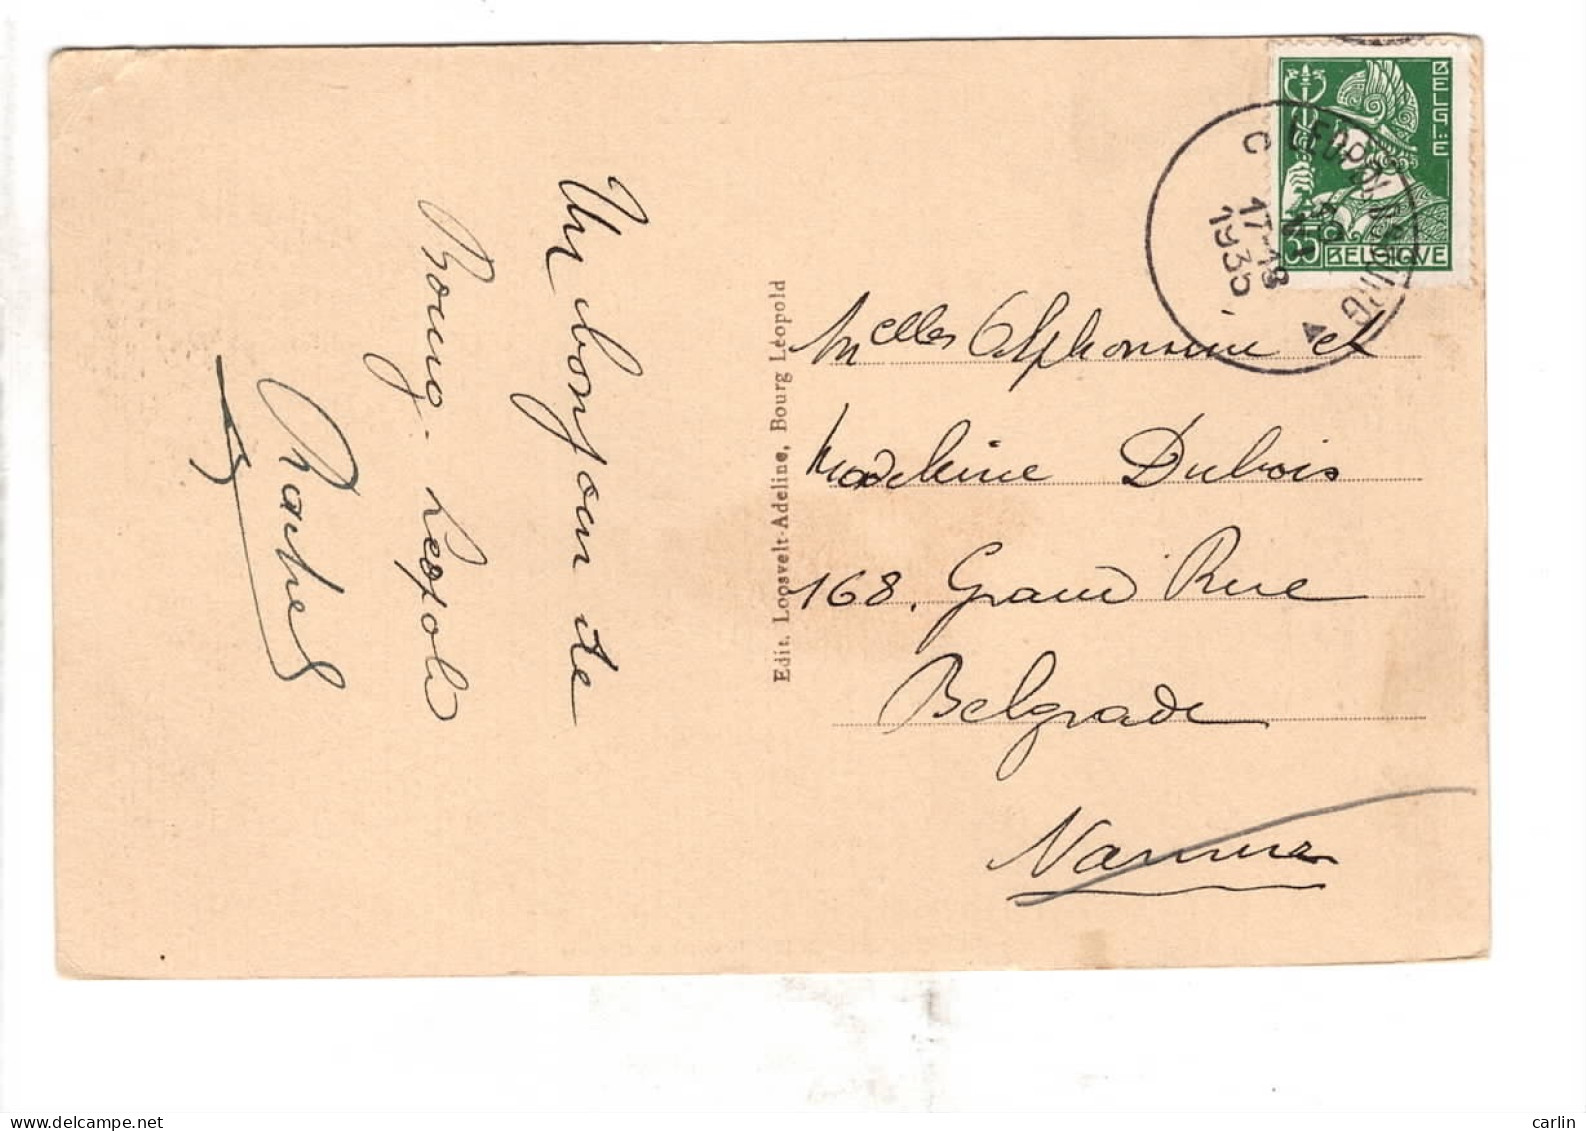 Un bonjour de
Bourg-Léopold
Rachel
Edit. Loosvelt-Adeline, Bourg Léopold
BELGIË
35 BELGIQUE
C LEOPOLDSBURG
17-18
1935
Mcelles Alphonsine et
Madeleine Dubois
168. Grand Rue
Belgrade
Namur
carlin